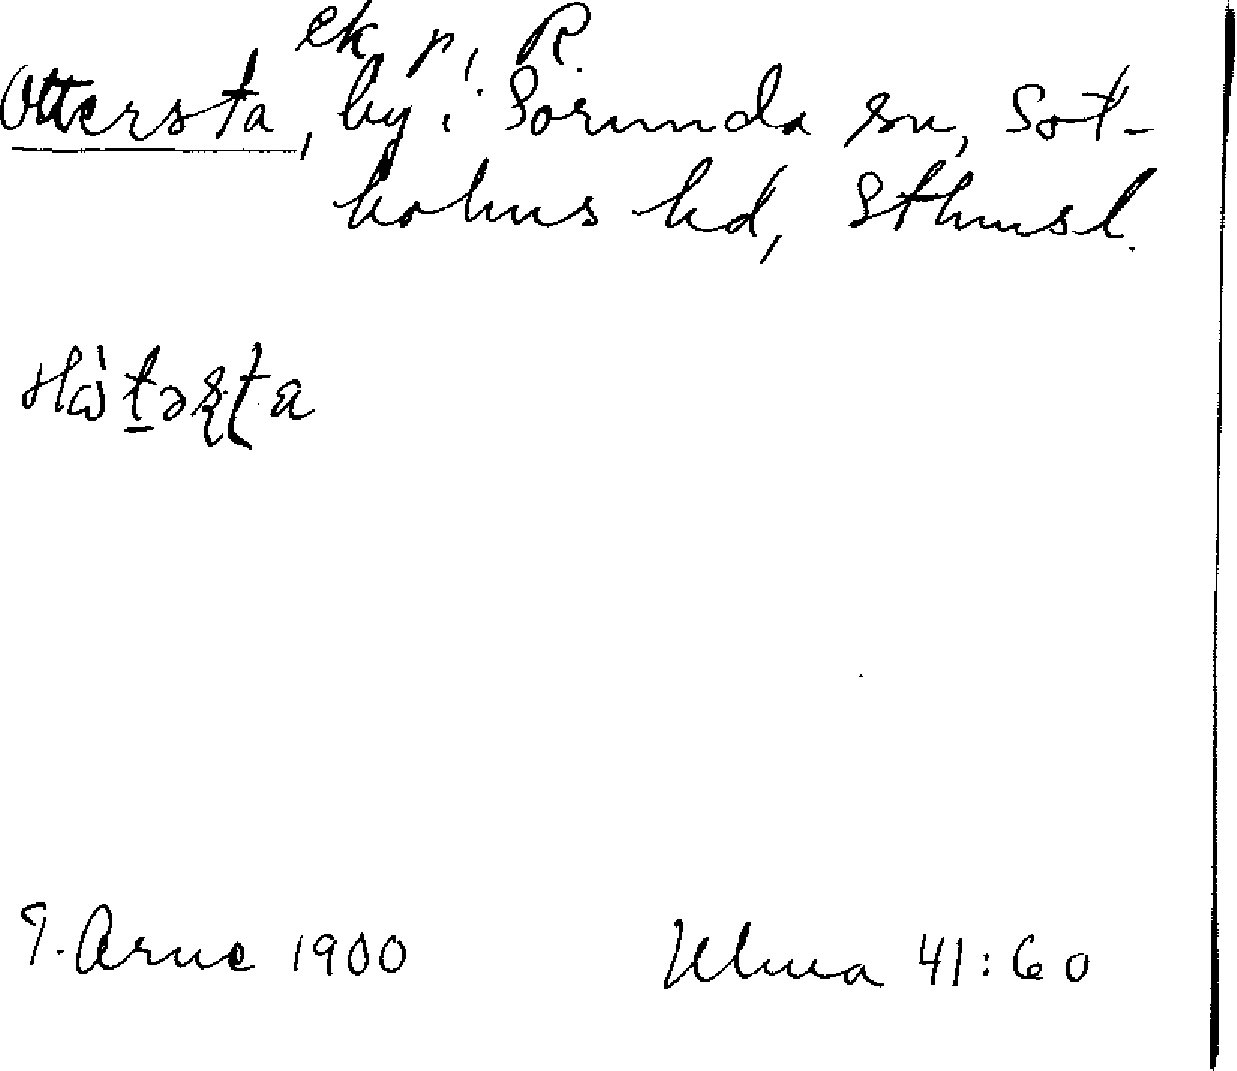 ek p. R.
Ottersta, by i Sorunda sn, Sot-
holms hd, Sthmsl.
T. Arne 1900 Ulma 41:60